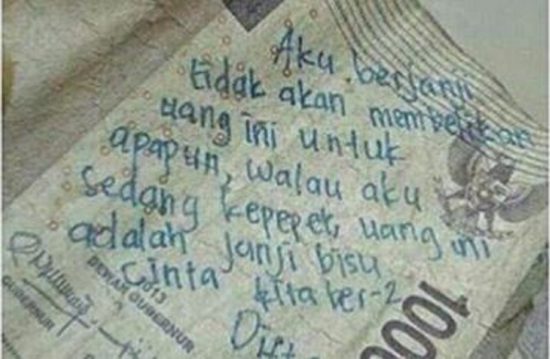 Aku berjanji
tidak akan membelikan
uang ini untuk
apapun, walau aku
sedang kepepet, uang ini
adalah janji bisu
cinta kita ber-2
GUBERNUR
2013
DEWAN GUBERNUR
1000